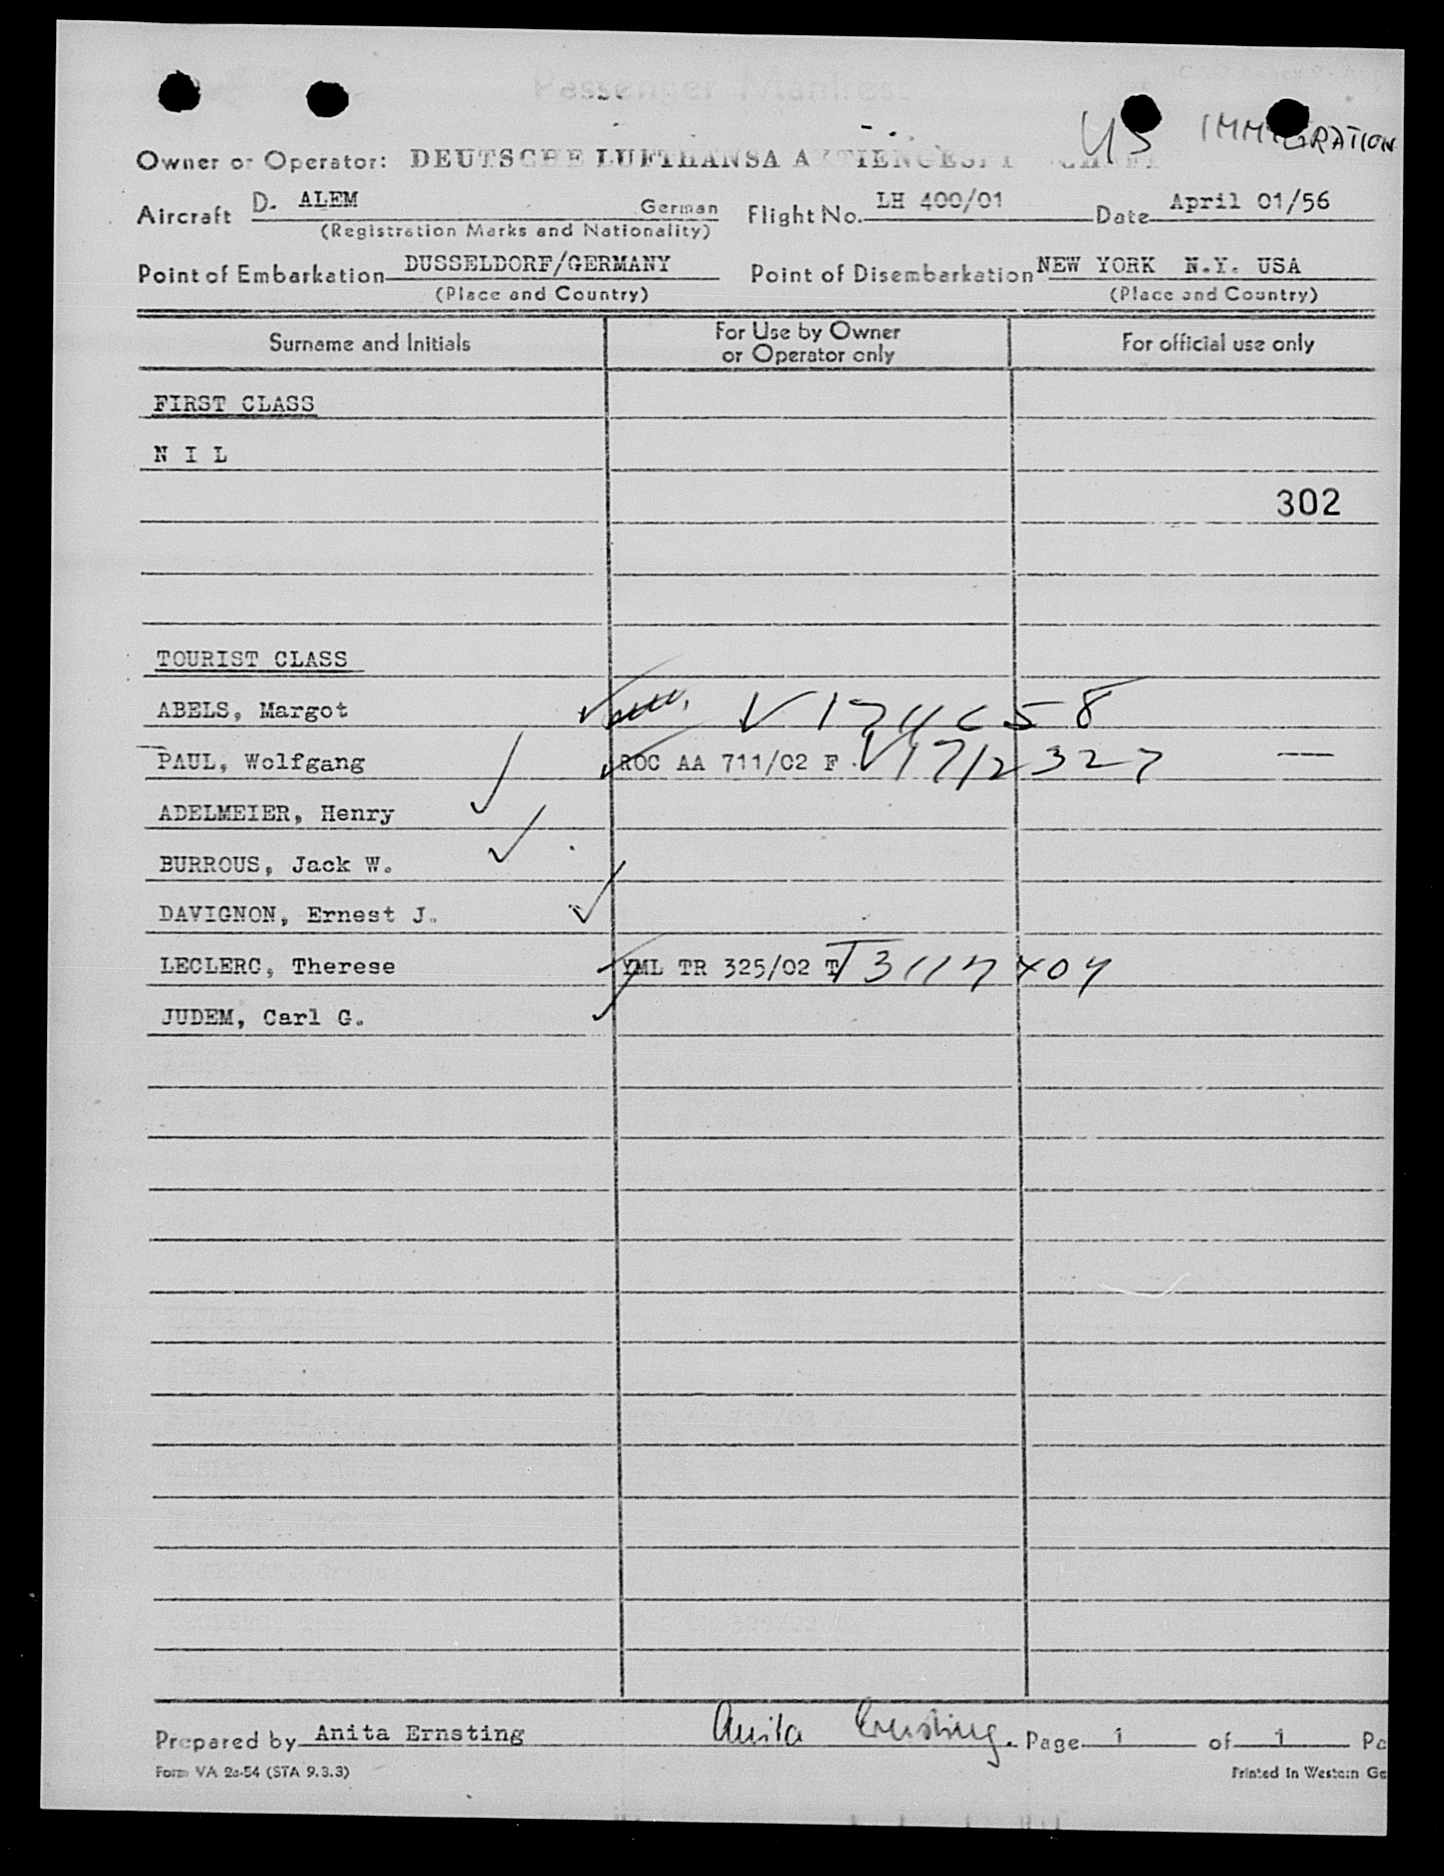 Passenger Manifest
US IMMIGRATION
Owner or Operator: DEUTSCHE LUFTHANSA AKTIENGESELLSCHAFT
Aircraft D. ALEM German Flight No. LH 400/01 Date April 01/56
(Registration Marks and Nationality)
Point of Embarkation DUSSELDORF/GERMANY Point of Disembarkation NEW YORK N.Y. USA
(Place and Country) (Place and Country)
Surname and Initials For Use by Owner or Operator only For official use only
FIRST CLASS
N I L
302
TOURIST CLASS
ABELS, Margot
PAUL, Wolfgang ROC AA 711/02 F V1712327 —
ADELMEIER, Henry
BURROUS, Jack W.
DAVIGNON, Ernest J.
LECLERC, Therese YML TR 325/02 T
JUDEM, Carl G.
Prepared by Anita Ernsting Anita Ernsting. Page 1 of 1 Pa
Form VA 2c-54 (STA 9.3.3) Printed in Western Ge